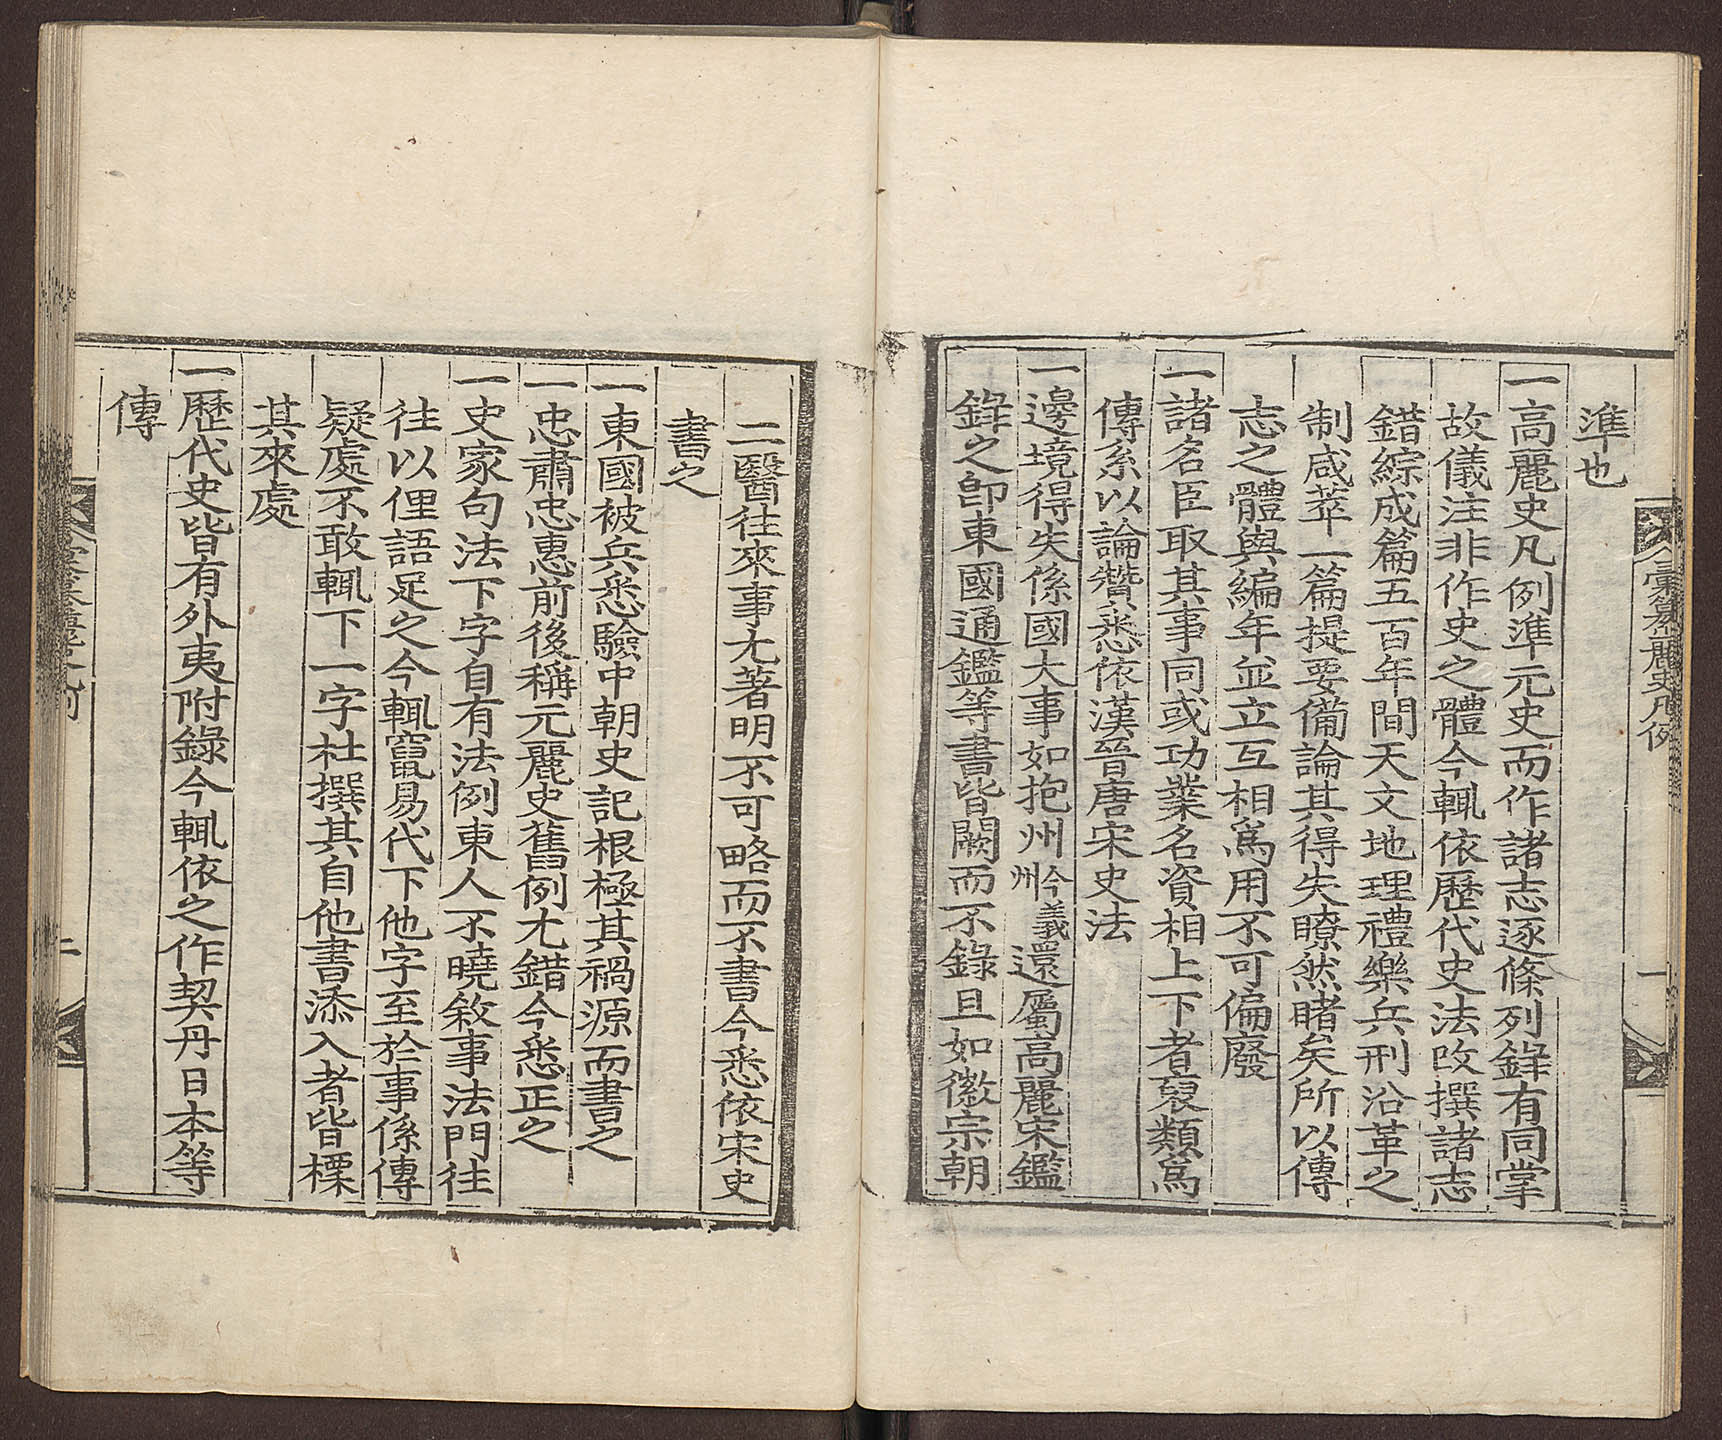 彙纂麗史凡例
一
準也
一高麗史凡例準元史而作諸志逐條列錄有同掌
故儀注非作史之體今輒依歷代史法改撰諸志
錯綜成篇五百年間天文地理禮樂兵刑沿革之
制咸萃一篇提要備論其得失瞭然睹矣所以傳
志之體與編年並立互相爲用不可偏廢
一諸名臣取其事同或功業名資相上下者裒類爲
傳系以論贊悉依漢晉唐宋史法
一邊境得失係國大事如抱州今義州還屬高麗宋鑑
錄之卽東國通鑑等書皆闕而不錄且如徽宗朝
二醫往來事尤著明不可略而不書今悉依宋史
書之
一東國被兵悉驗中朝史記根極其禍源而書之
一忠肅忠惠前後稱元麗史舊例尤錯今悉正之
一史家句法下字自有法例東人不曉敘事法門往
往以俚語足之今輒竄易代下他字至於事係傳
疑處不敢輒下一字杜撰其自他書添入者皆標
其來處
一歷代史皆有外夷附錄今輒依之作契丹日本等
傳
二